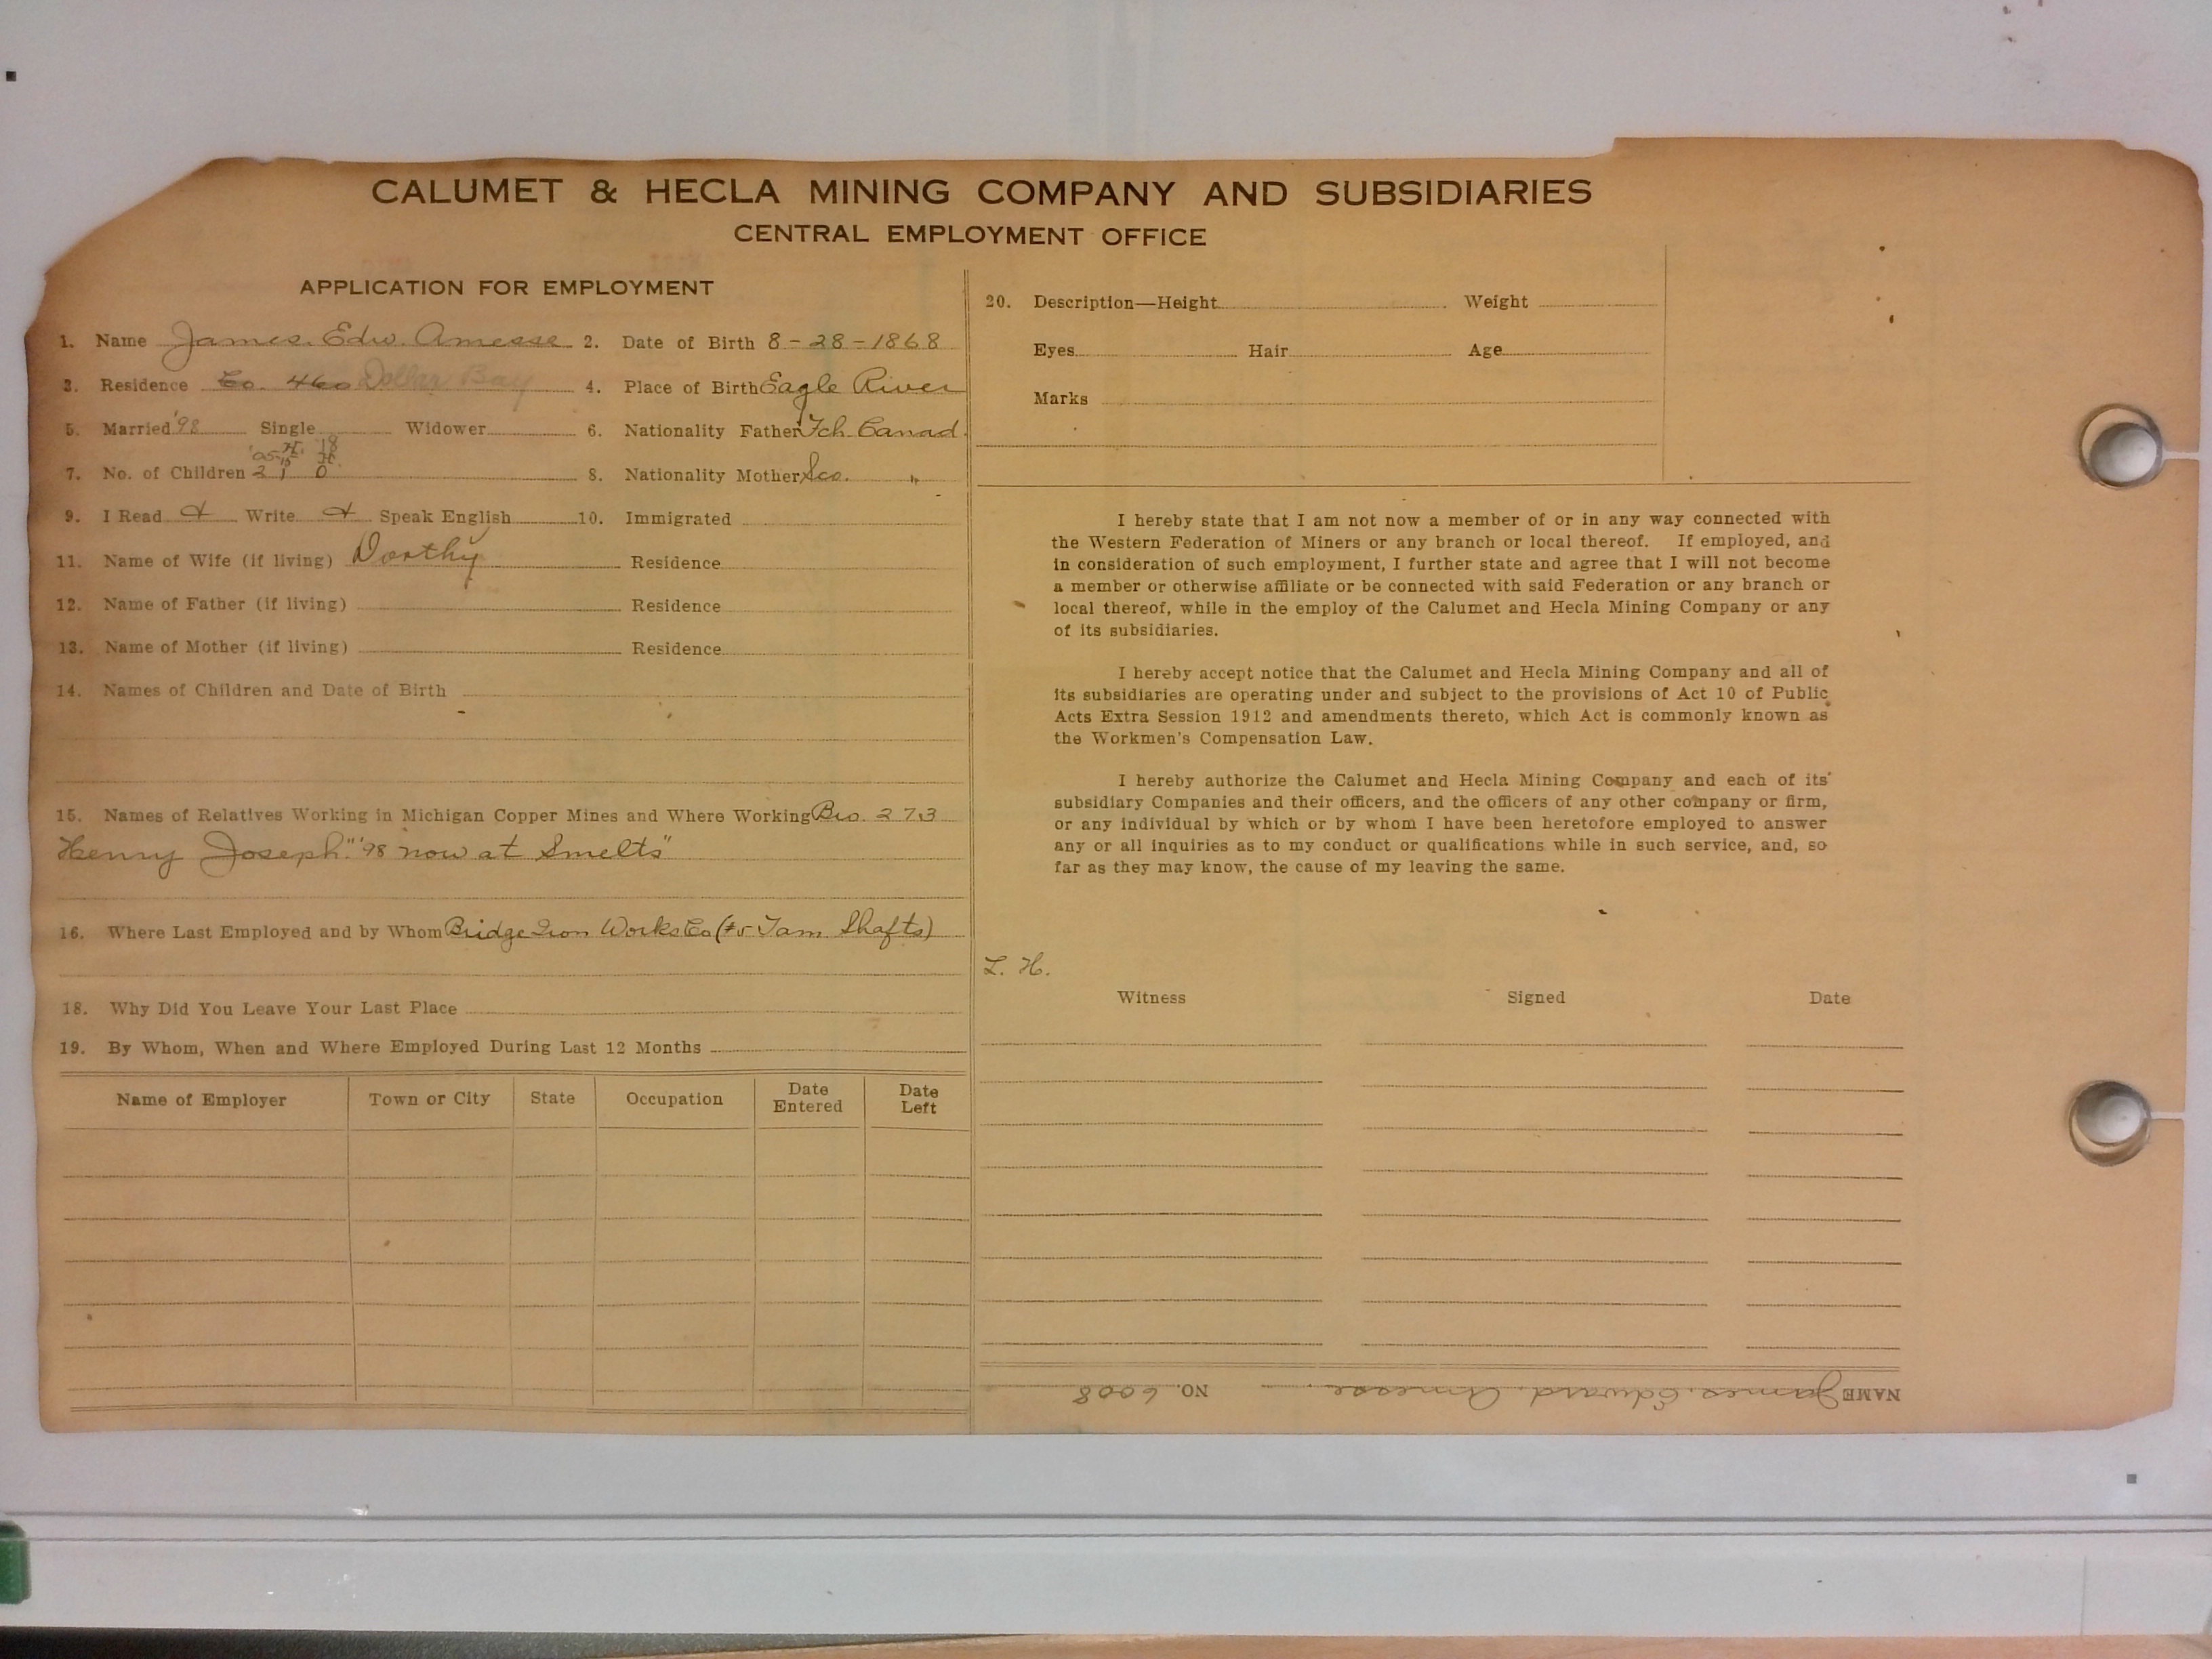 CALUMET & HECLA MINING COMPANY AND SUBSIDIARIES
CENTRAL EMPLOYMENT OFFICE
APPLICATION FOR EMPLOYMENT
1. Name James. Edw. Amesse 2. Date of Birth 8-28-1868
3. Residence Co. 460 Dollar Bay 4. Place of Birth Eagle River
5. Married '98 Single Widower 6. Nationality Father Fch Canad.
'05
7. No. of Children 2 1 0 8. Nationality Mother Sco. "
9. I Read Write Speak English 10. Immigrated
11. Name of Wife (if living) Dorthy Residence
12. Name of Father (if living) Residence
13. Name of Mother (if living) Residence
14. Names of Children and Date of Birth
15. Names of Relatives Working in Michigan Copper Mines and Where Working Bro. 273
Henry Joseph "'98 now at Smelts"
16. Where Last Employed and by Whom Bridge Iron Works Co (#5 Tam Shafts)
18. Why Did You Leave Your Last Place
19. By Whom, When and Where Employed During Last 12 Months
Name of Employer Town or City State Occupation Date Entered Date Left
20. Description—Height Weight
Eyes Hair Age
Marks
I hereby state that I am not now a member of or in any way connected with
the Western Federation of Miners or any branch or local thereof. If employed, and
in consideration of such employment, I further state and agree that I will not become
a member or otherwise affiliate or be connected with said Federation or any branch or
local thereof, while in the employ of the Calumet and Hecla Mining Company or any
of its subsidiaries.
I hereby accept notice that the Calumet and Hecla Mining Company and all of
its subsidiaries are operating under and subject to the provisions of Act 10 of Public
Acts Extra Session 1912 and amendments thereto, which Act is commonly known as
the Workmen's Compensation Law.
I hereby authorize the Calumet and Hecla Mining Company and each of its
subsidiary Companies and their officers, and the officers of any other company or firm,
or any individual by which or by whom I have been heretofore employed to answer
any or all inquiries as to my conduct or qualifications while in such service, and, so
far as they may know, the cause of my leaving the same.
L. H.
Witness Signed Date
NAME James. Edward. Amesse. NO. 6008